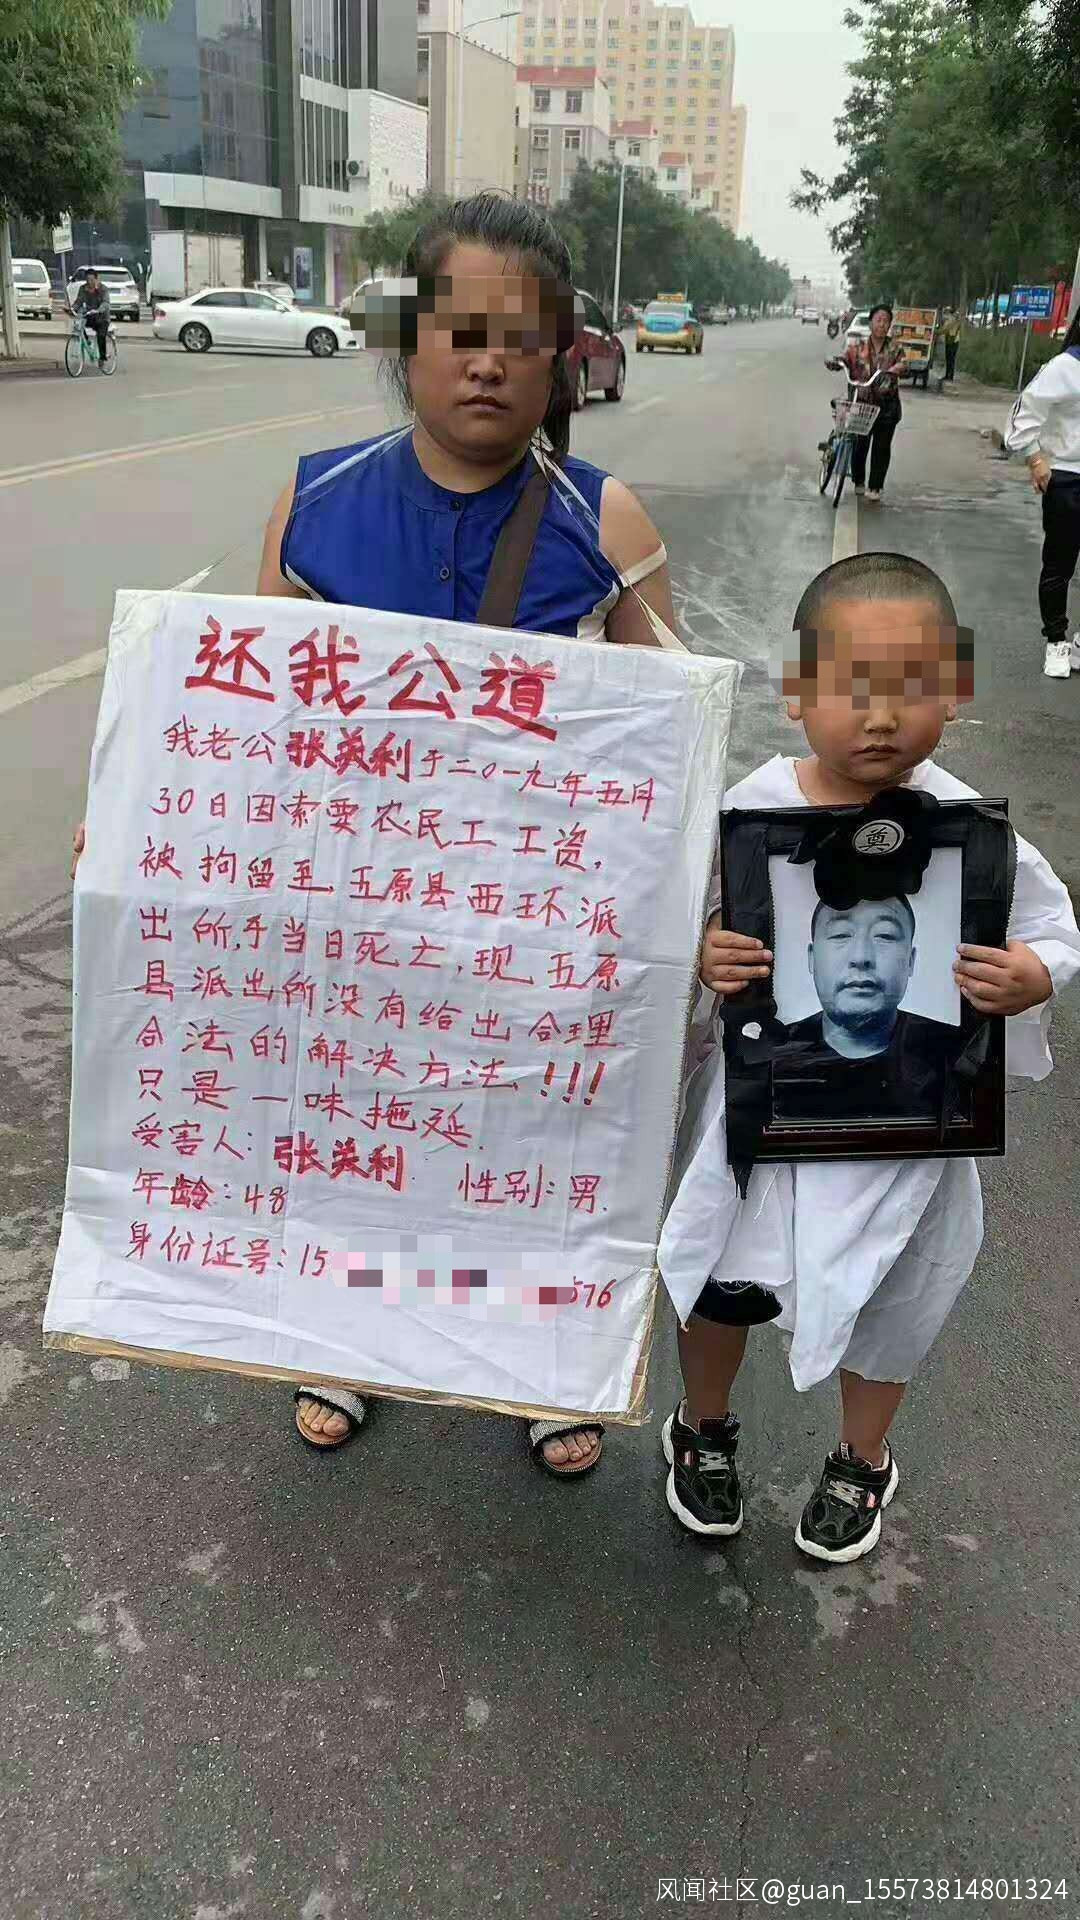 还我公道
我老公张英利于二0一九年五月
30日因索要农民工工资,
被拘留至五原县西环派
出所,于当日死亡,现五原
县派出所没有给出合理
合法的解决方法!!!
只是一味拖延.
受害人:张英利 性别:男.
年龄:48
身份证号:15 576
奠
风闻社区@guan_15573814801324